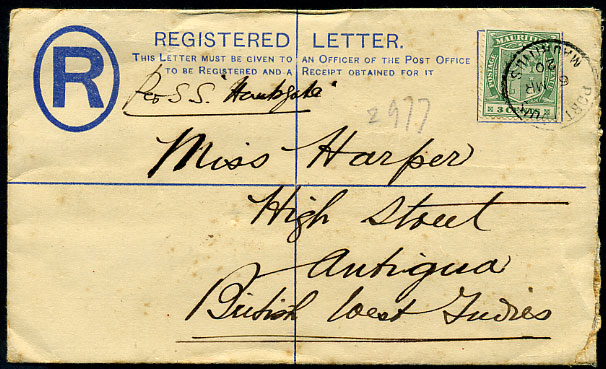 R
REGISTERED LETTER.
THIS LETTER MUST BE GIVEN TO AN OFFICER OF THE POST OFFICE
TO BE REGISTERED AND A RECEIPT OBTAINED FOR IT
MAURITIUS
POSTAGE
PORT
MAURITIUS
MR
Per S.S.
2977
Miss Harper
High Street
Antigua
British West Indies